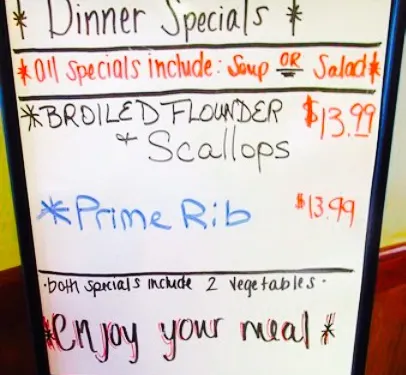 * Dinner Specials *
*All specials include: Soup OR Salad*
*BROILED FLOUNDER $13.99
+ Scallops
*Prime Rib $13.99
·both specials include 2 vegetables·
*enjoy your meal*